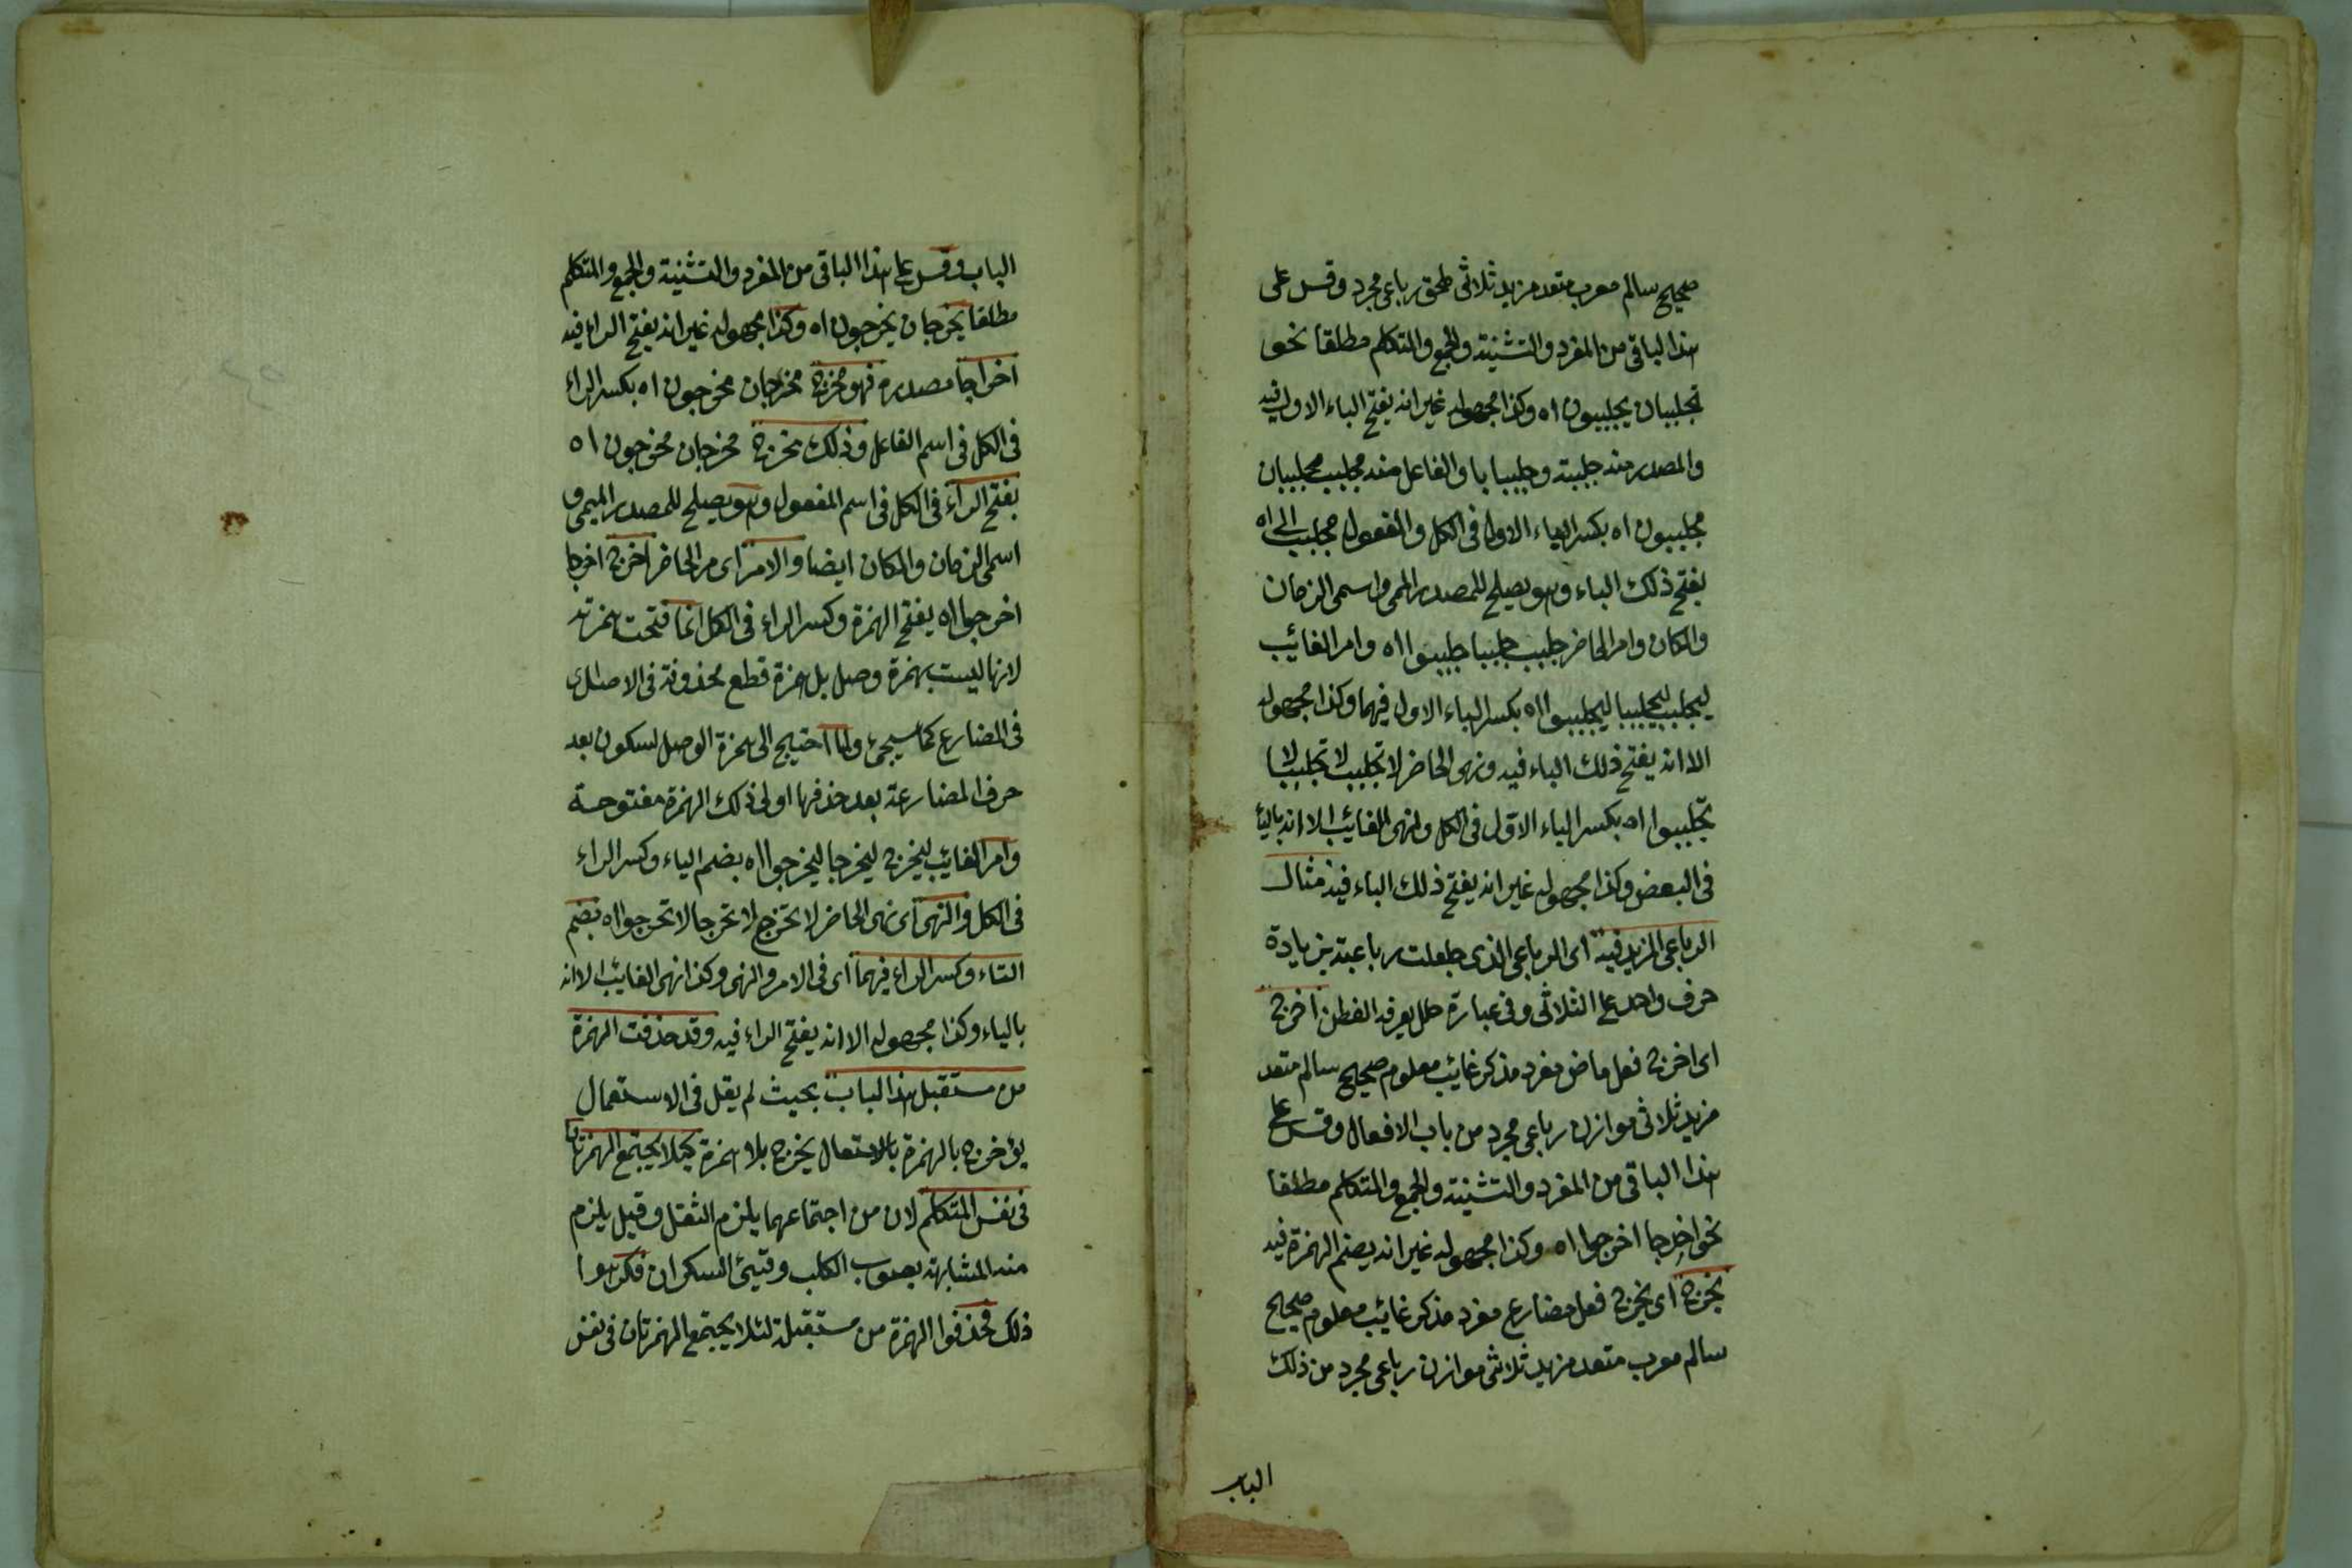 صحيح سالم معرب متعد مزيد ثلاثى ملحق رباعى مجرد وقس على
هذا الباقى من المفرد والتثنية والجمع والمتكلم مطلقا نحو
تجلببان يجلببون اه وكذا مجهوله غير انه يفتح الباء الاول فيه
والمصدر منه جلببة وجلبابا والفاعل منه مجلبب مجلببان
مجلببون اه بكسر الباء الاول فى الكل والمفعول مجلبب الى اه
بفتح ذلك الباء وهو يصلح للمصدر الميمى واسمى الزمان
والمكان وامر الحاضر جلبب جلببا جلببوا اه وامر الغائب
ليجلبب ليجلببا ليجلببوا اه بكسر الباء الاول فيهما وكذا مجهوله
الا انه يفتح ذلك الباء فيه ونهى الحاضر لا تجلبب لا تجلببا لا
تجلببوا اه بكسر الباء الاول فى الكل ونهى الغائب الا انه بالياء
فى البعض وكذا مجهوله غير انه يفتح ذلك الباء فيه مثال
الرباعى المزيد فيه اى الرباعى الذى جعلت رباعيته بزيادة
حرف واحد على الثلاثى وفى عبارة خلل يعرفه الفطن اخرج
اى اخرج فعل ماض مفرد مذكر غائب معلوم صحيح سالم متعد
مزيد ثلاثى موازن رباعى مجرد من باب الافعال وقس على
هذا الباقى من المفرد والتثنية والجمع والمتكلم مطلقا
نحو اخرجا اخرجوا اه وكذا مجهوله غير انه يضم الهمزة فيه
يخرج اى يخرج فعل مضارع مفرد مذكر غائب معلوم صحيح
سالم معرب متعد مزيد ثلاثى موازن رباعى مجرد من ذلك
الباب
الباب وقس على هذا الباقى من المفرد والتثنية والجمع والمتكلم
مطلقا يخرجان يخرجون اه وكذا مجهوله غير انه يفتح الراء فيه
اخراجا مصدره فهو مخرج مخرجان مخرجون اه بكسر الراء
فى الكل فى اسم الفاعل وذلك مخرج مخرجان مخرجون اه
بفتح الراء فى الكل فى اسم المفعول وهو يصلح للمصدر الميمى و
اسمى الزمان والمكان ايضا والامر اى مر الحاضر اخرج اخرجا
اخرجوا اه بفتح الهمزة وكسر الراء فى الكل انما فتحت همزته
لانها ليست بهمزة وصل بل همزة قطع محذوفة فى الاصل
فى المضارع كما سيجئ ولما احتيج الى همزة الوصل لسكون بعد
حرف المضارعة بعد حذفها اولى ذلك الهمزة مفتوحة
وامر الغائب ليخرج ليخرجا ليخرجوا اه بضم الياء وكسر الراء
فى الكل والنهى اى نهى الحاضر لا تخرج لا تخرجا لا تخرجوا اه بضم
التاء وكسر الراء فيهما اى فى الامر والنهى وكذا نهى الغائب الا انه
بالياء وكذا مجهوله الا انه يفتح الراء فيه وقد حذفت الهمزة
من مستقبل هذا الباب بحيث لم يقل فى الاستعمال
يؤخرج بالهمزة بالاستعمال يخرج بلا همزة كيلا يجتمع الهمزتان
فى نفس المتكلم لان من اجتماعهما يلزم الثقل وقيل يلزم
منه المشابهة بصوب الكلب وقيئ السكران فكرهوا
ذلك فحذفوا الهمزة من مستقبله لئلا يجتمع الهمزتان فى نفس